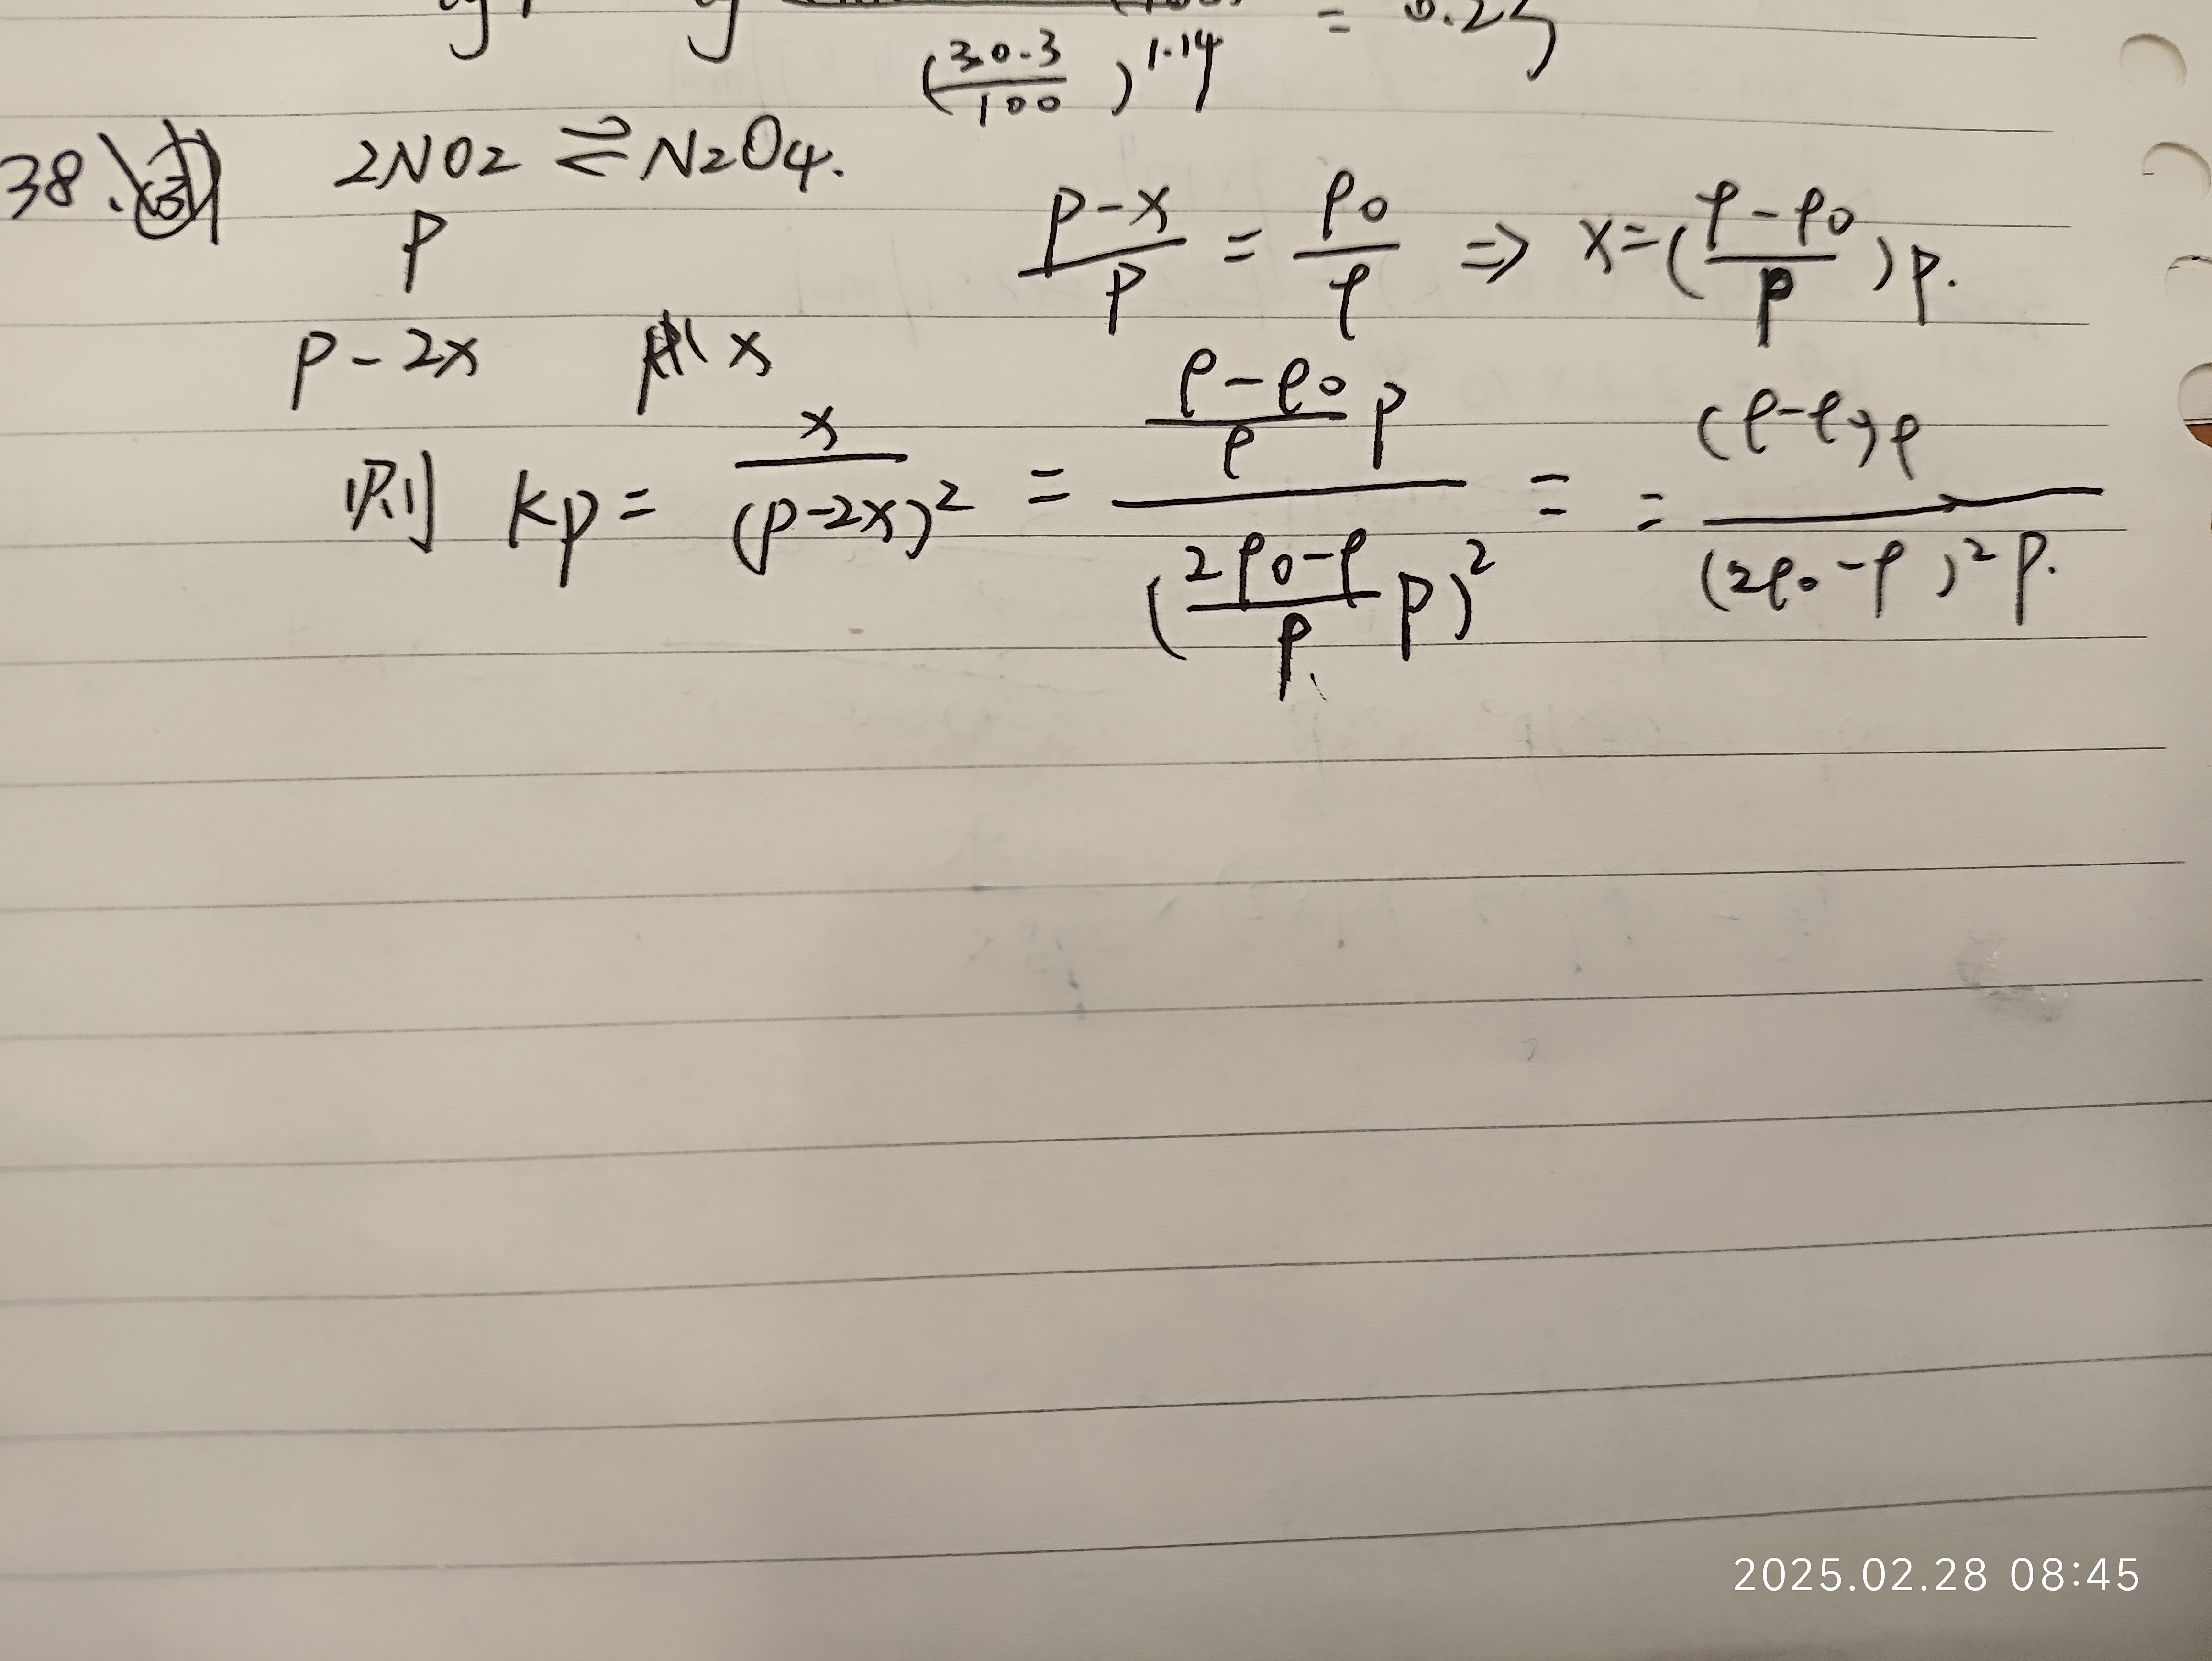 (30.3/100)^1.14 = 0.25
38. 2NO2 ⇌ N2O4.
P
P-2x x
(P-x)/P = ρ0/ρ ⇒ x=((ρ-ρ0)/ρ)P.
则 Kp = x/(P-2x)^2 = ((ρ-ρ0)/ρ P)/((2ρ0-ρ)/ρ P)^2 = = (ρ-ρ0)ρ/(2ρ0-ρ)^2 P.
2025.02.28 08:45